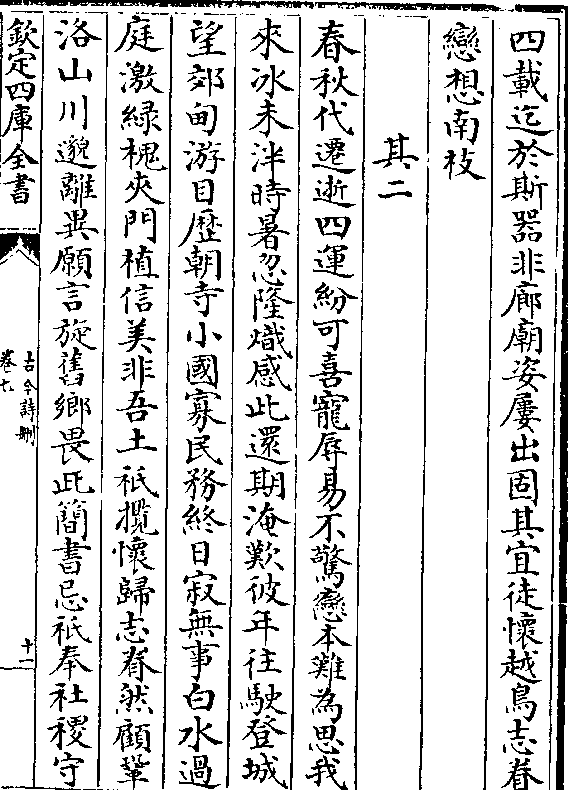 四載迄於斯器非廊廟姿屢出固其宜徒懷越鳥志眷
戀想南枝
其二
春秋代遷逝四運紛可喜寵辱易不驚戀本難為思我
來冰未泮時暑忽隆熾感此還期淹歎彼年往駛登城
望郊甸游目歷朝寺小國寡民務終日寂無事白水過
庭激綠槐夾門植信美非吾土祗攬懷歸志眷然顧鞏
洛山川邈離異願言旋舊鄉畏此簡書忌祗奉社稷守
欽定四庫全書
古今詩刪
卷七
十一